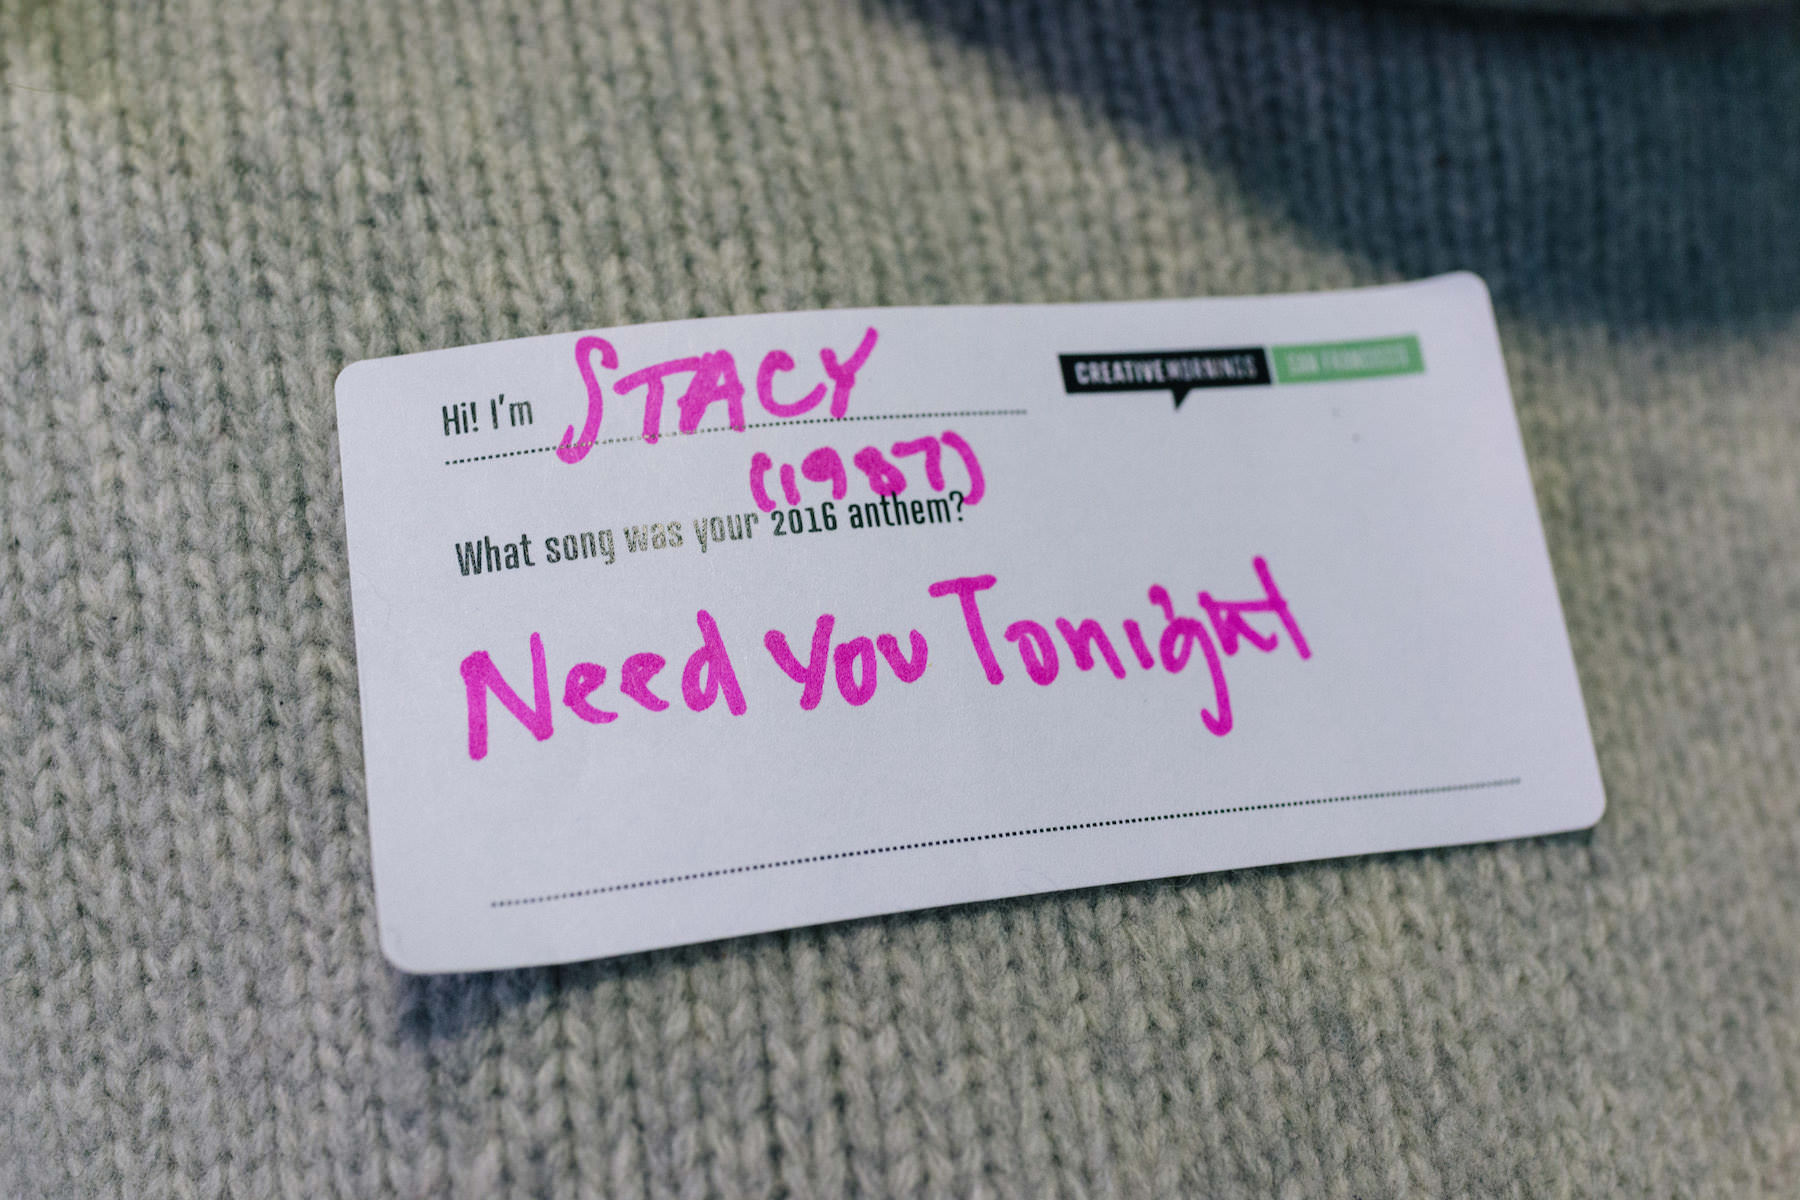 Hi! I'm STACY
CREATIVEMORNINGS SAN FRANCISCO
(1987)
What song was your 2016 anthem?
Need You Tonight